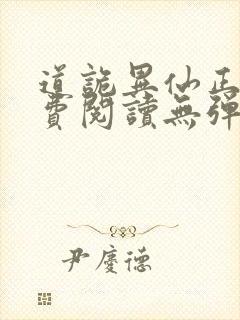 道詭異仙正
費閱讀無彈
尹慶德